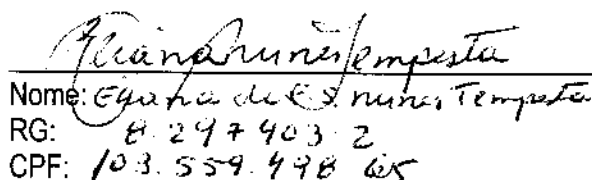 Eliana Nunes Tempesta
Nome: Eliana de S. Nunes Tempesta
RG: 8 297 403 2
CPF: 103.559.498